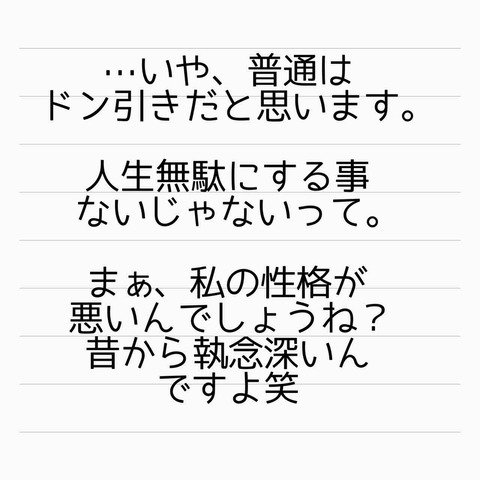 …いや、普通は
ドン引きだと思います。
人生無駄にする事
ないじゃないって。
まぁ、私の性格が
悪いんでしょうね？
昔から執念深いん
ですよ笑